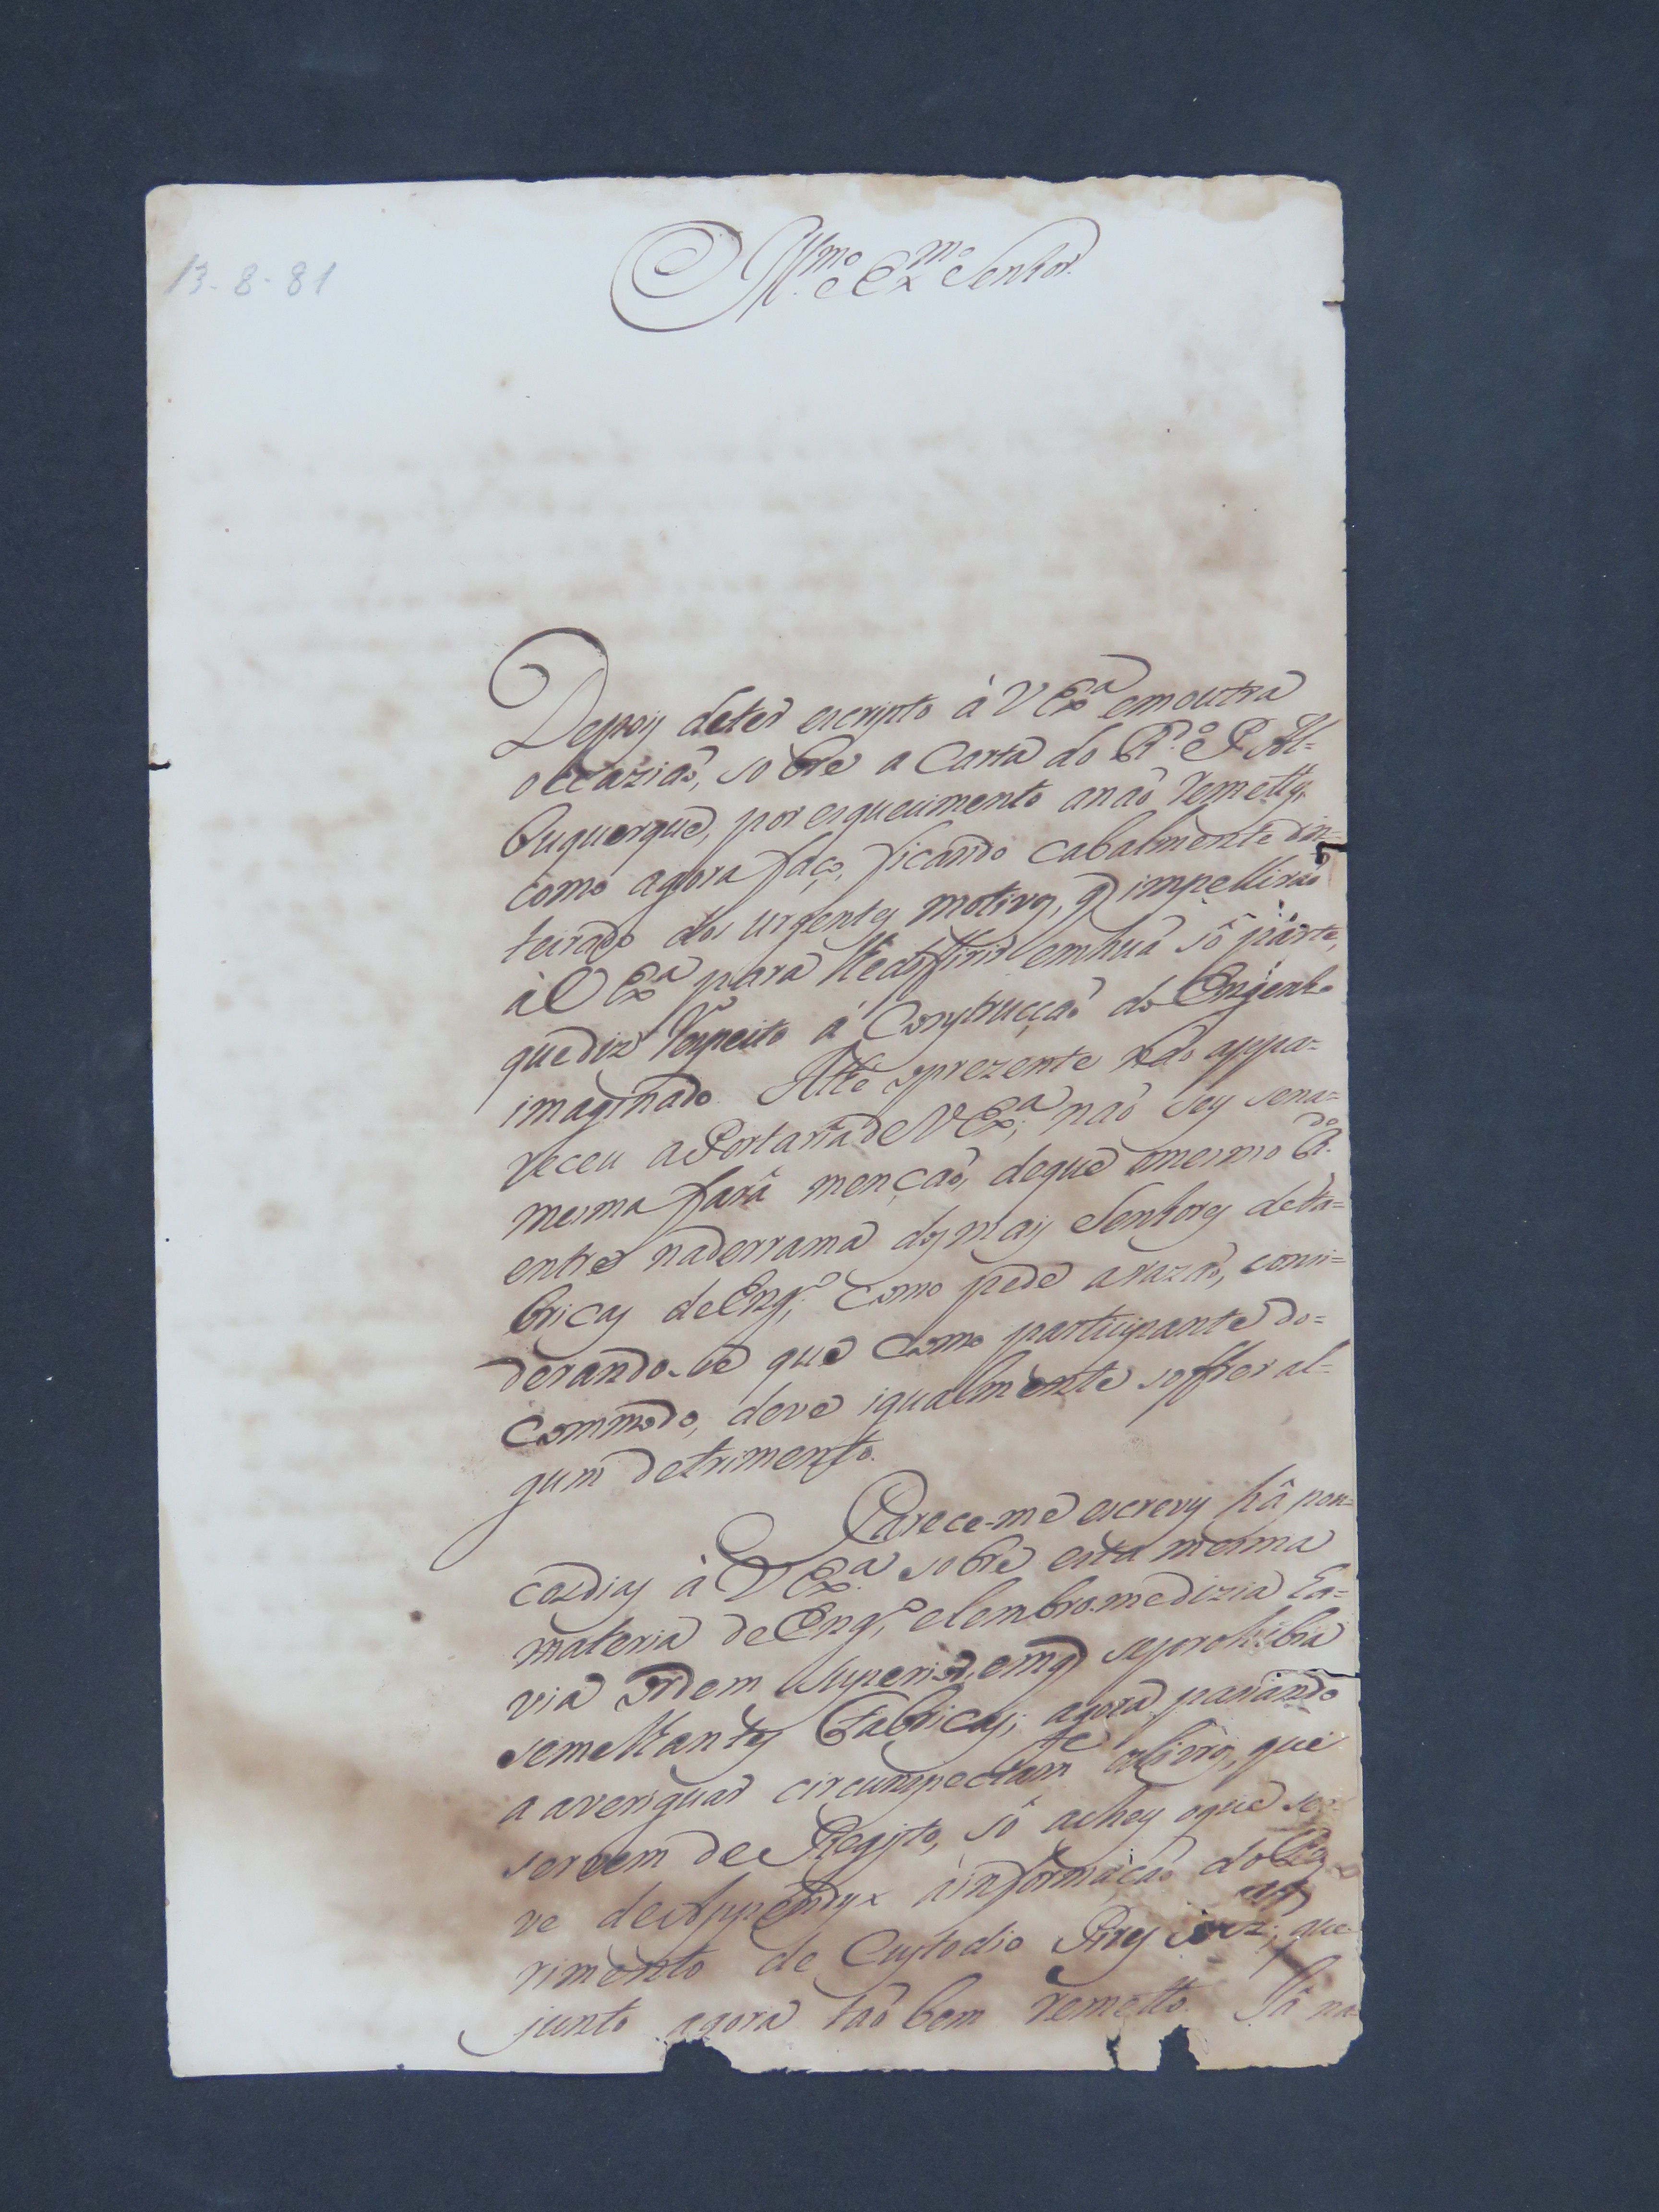 13-8-81
Ill.mo e Ex.mo Senhor.
Depoiz deter escripto à V Ex.a emoutra
occaziaõ, sobre a Carta do R.do P. Al=
buquerque, por esquecimento anaõ remetty,
como agora faço, ficando cabalmente in=
teirado dos urgentes motivos, q impelliraõ
à V Ex.a para lhe differir emhuã sô parte,
quediz respeito á Construcçaõ do Engenho
imaginado. Athe oprezente naõ appa=
receu aPortaria de V Ex.a, naõ sey sena=
mesma fará mençaõ, deque omesmo R.do
entre naderrama dos mais Senhores defa=
bricas de Eng.o, como pede arazaõ, consi=
derando-se que como participante do=
commodo, deve igualmente soffrer al=
gum detrimento.
Parece-me escrevy hâ pou=
cosdias à V Ex.a sobre esta mesma
materia de Eng.o, elembro-me dizia ha=
via ordem Superior, emq seprohibia
semelhantes Fabricas; agora passando
a averiguar circumspectam.te oslivros, que
servem de Registo, sô achey oque ser=
ve de Appendyx áinformaçaõ do Re=
rimento de Custodio Pires que
junto agora taõ bem remetto. Jâ na=